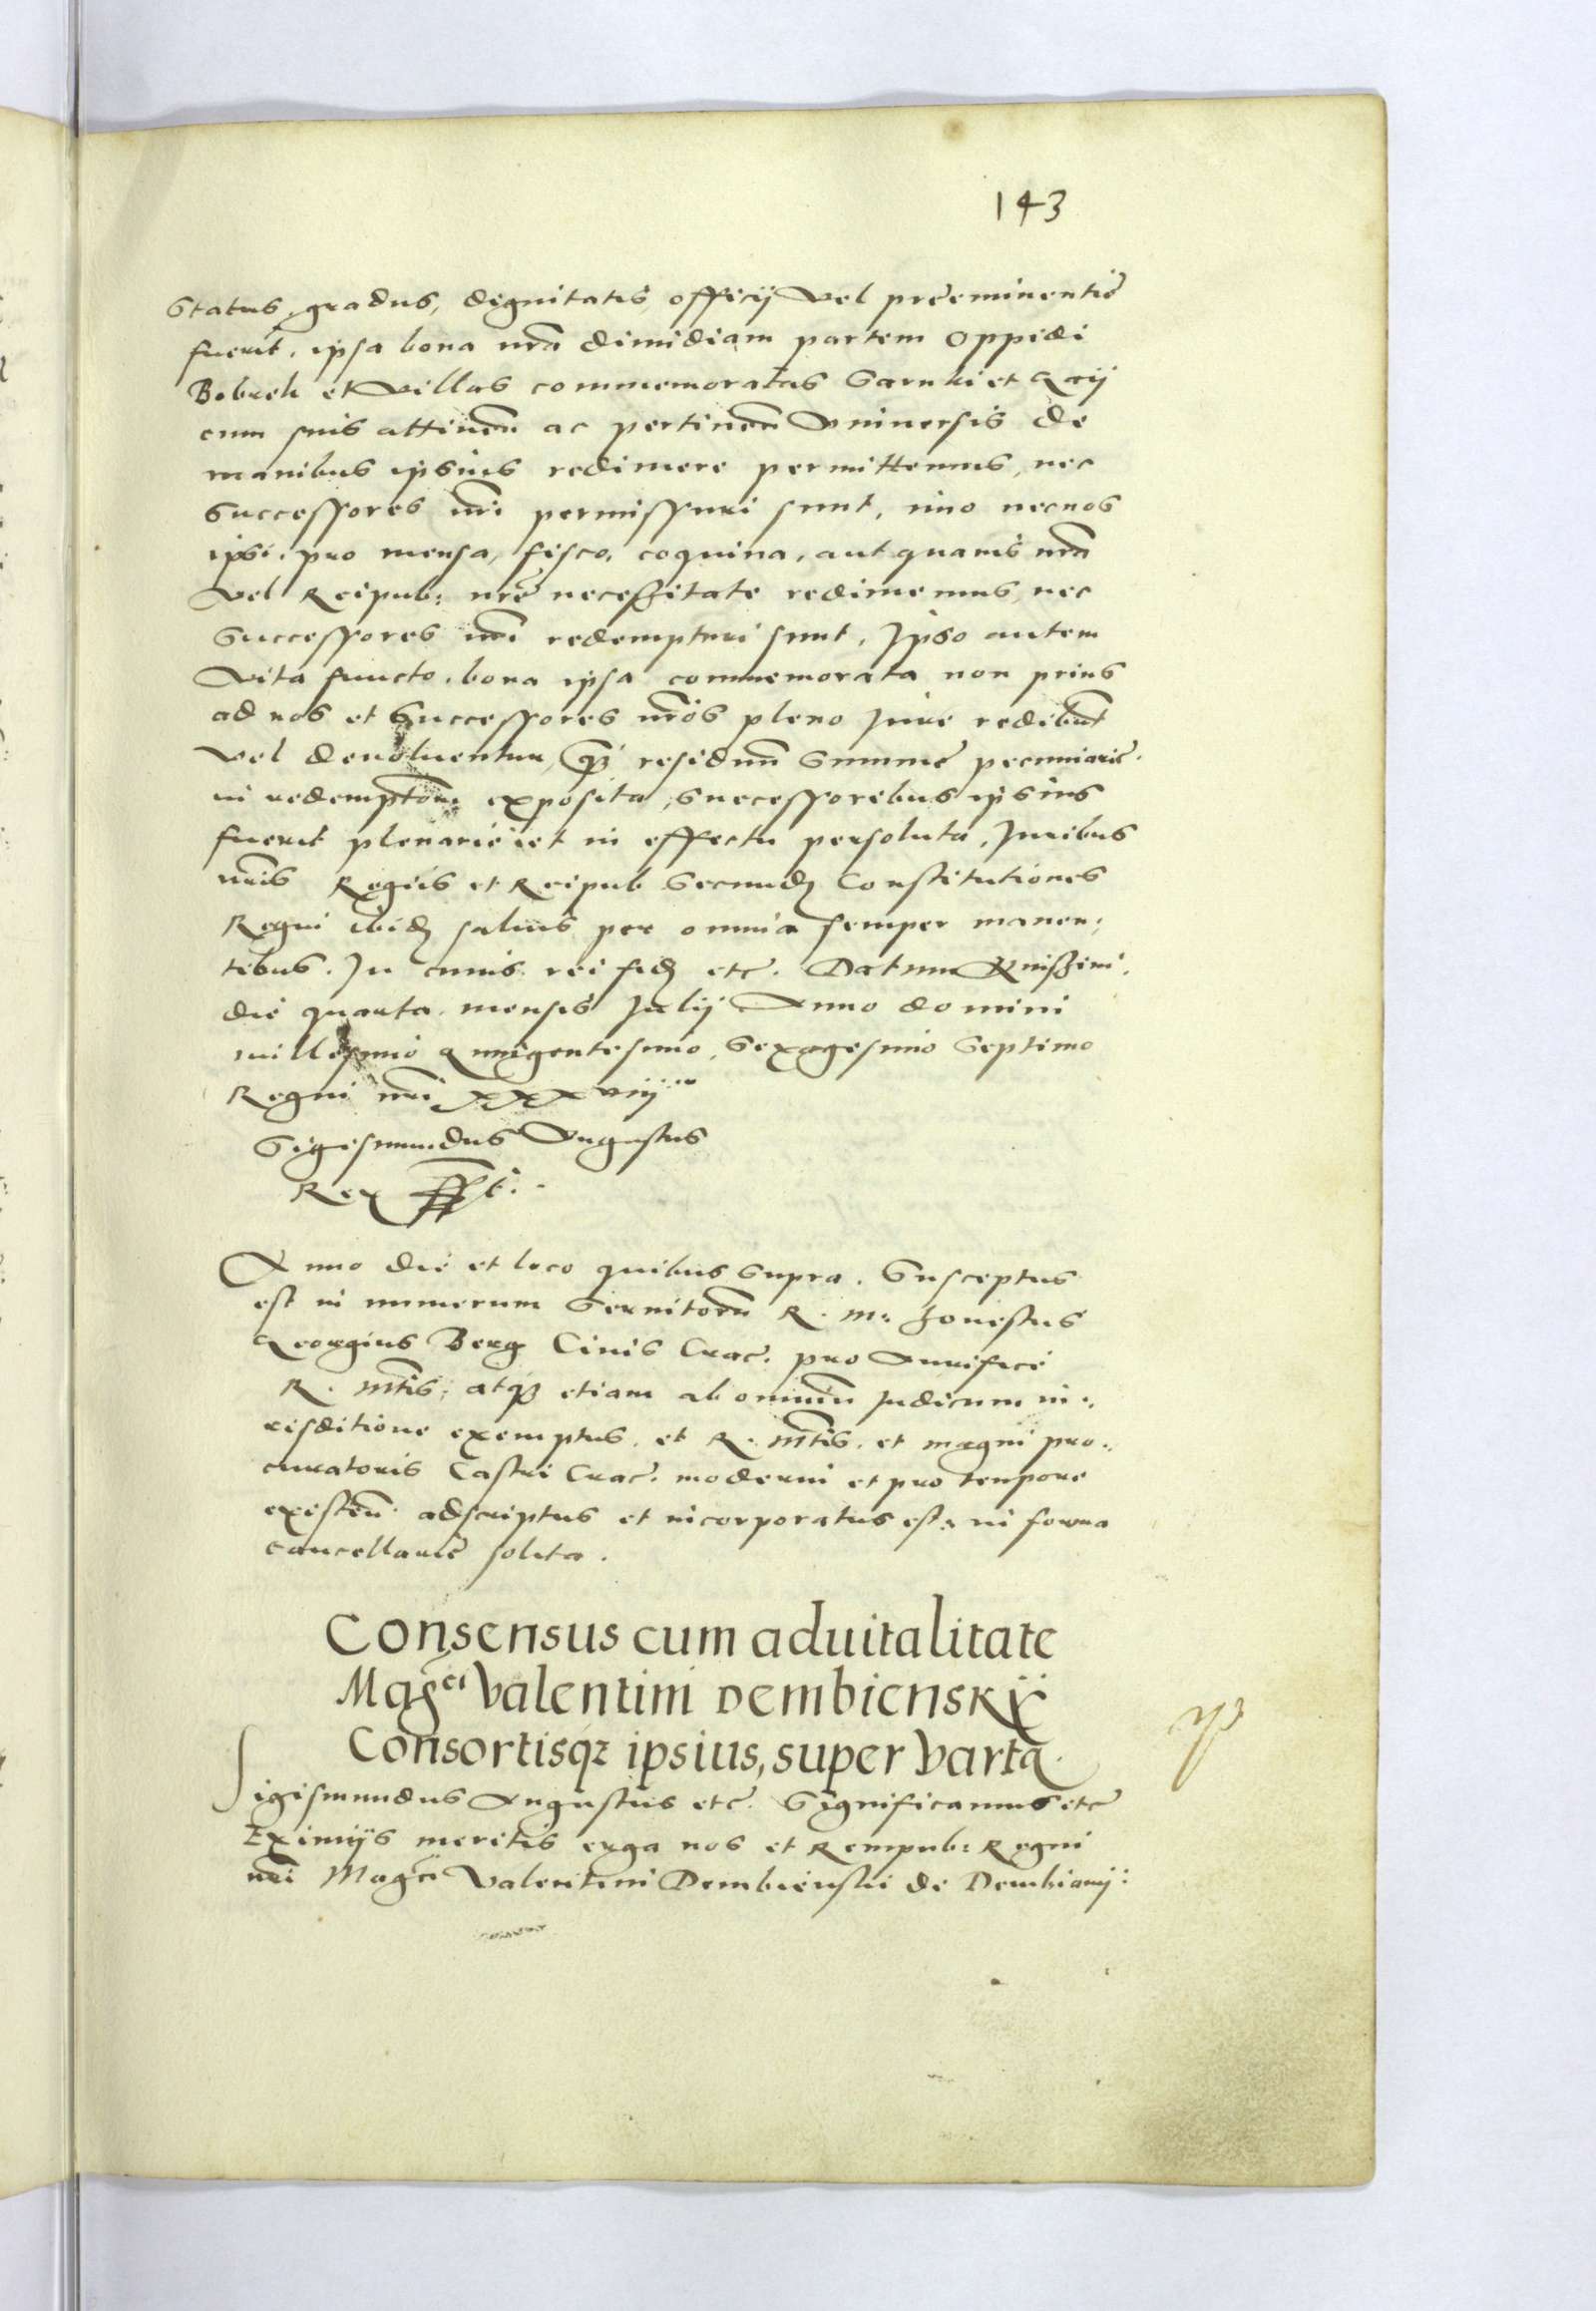 143
status, gradus, dignitatis, officij vel preeminentie
fuerit, ipsa bona nra dimidiam partem oppidi
Bobrek et villas commemoratas Sarnki et
cum suis attinen ac pertinen Vniuersis de
manibus ipsius redimere permittemus, nec
successores nri permissuri sunt, imo nec nos
ipsi, pro mensa, fisco, coquina, aut quauis nra
vel Reipub: nre necessitate redimemus, nec
Successores nri redempturi sunt, Ipso autem
vita functo, bona ipsa commemorata non prius
ad nos et Successores nros pleno Jure redibunt
vel deuoluentur, residuum summe pecuniarie
in redemptione exposita, successoribus ipsius
fuerit plenarie et in effectu persoluta, Juribus
nris Regiis et Reipub secundum Constitutiones
Regni ibidem saluis per omnia semper manen:
tibus. In cuius rei fidem etc. Datum Knissini,
die quarta mensis Julij Anno domini
millesimo quingentesimo, sexagesimo septimo
Regni nri xxxviij
Sigismundus Augustus
Rex sst.
Anno die et loco quibus supra. Susceptus
est in numerum Seruitorum R. M: honestus
Georgius Berg Ciuis Crac. pro Aurifice
R. Mtis, atque etiam ab omnium Judicum iu:
risditione exemptus, et R. Mtis. et magni pro:
curatoris Castri Crac. moderni et pro tempore
existen. adscriptus et incorporatus est, in forma
cancellarie solita.
Consensus cum aduitalitate
Magci Valentini Dembiensky
Consortisqz ipsius, super Varta.
Sigismundus Augustus etc. Significamus etc
Eximijs meritis erga nos et Rempub: Regni
nri Magci Valentini Dembienski de Dembiany: